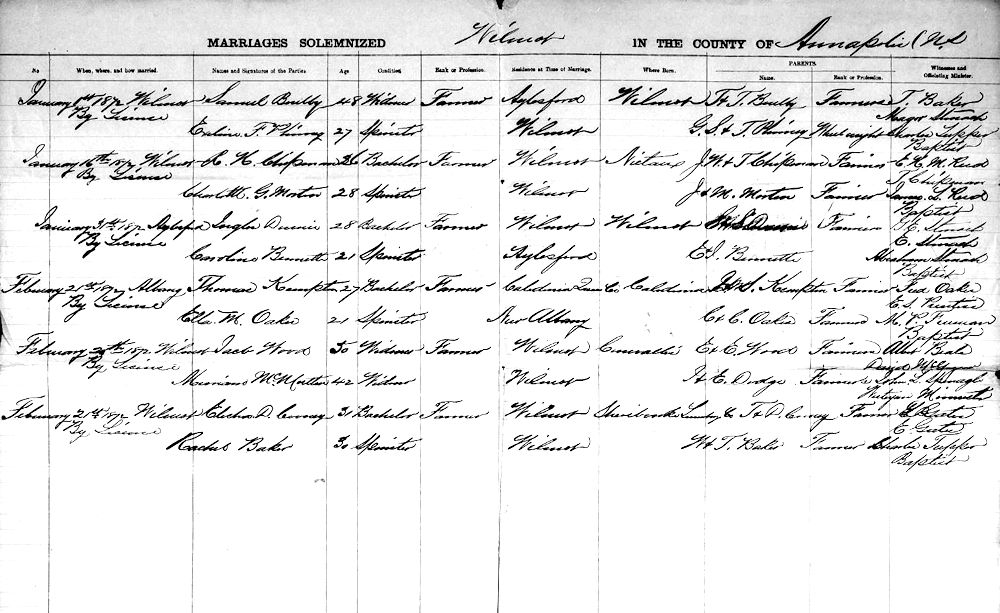 MARRIAGES SOLEMNIZED Wilmot IN THE COUNTY OF Annapolis (N.S
PARENTS.
No When, where, and how married. Names and Signatures of the Parties Age Condition. Rank or Profession. Residence at Time of Marriage. Where Born. Name. Rank or Profession. Witnesses and Officiating Minister.
January 1st 1872 Wilmot Samuel 48 Widower Farmer Aylesford Wilmot Farmer T. Baker
By License F. Phinney 27 Spinster Wilmot G. S. & T. Phinney Wheelwright Charles Tupper
Baptist
January 16th 1872 Wilmot R. H. Chipman 26 Bachelor Farmer Wilmot Nictaux J. W & T Chipman Farmer E. H. M. Reid
By License T Chipman
G. Morton 28 Spinster Wilmot J & M. Morton Farmer Reid
Baptist
January 31st 1872 Aylesford 28 Bachelor Farmer Wilmot Wilmot Farmer
By License E. Stronach
Caroline Bennett 21 Spinster Aylesford E J. Bennett Abraham Stronach
Baptist
February 21st 1872 Albany Thomas Kempton 27 Bachelor Farmer Caledonia Queens Co Caledonia S. Kempton Farmer Fred Oakes
By License E. S.
Ella M. Oakes 21 Spinster New Albany C & C. Oakes Farmer M. P. Freeman
Baptist
February 1872 Wilmot Jacob Wood 50 Widower Farmer Wilmot Cornwallis E & E Wood Farmer Albert Beals
By License David
42 Widow Wilmot H & E. Dodge Farmer John L. Sponagle
Wesleyan Minister
February 21st 1872 Wilmot 31 Bachelor Farmer Wilmot Sherbrooke Farmer
By License
Rachel Baker 30 Spinster Wilmot W & T. Baker Farmer Charles Tupper
Baptist